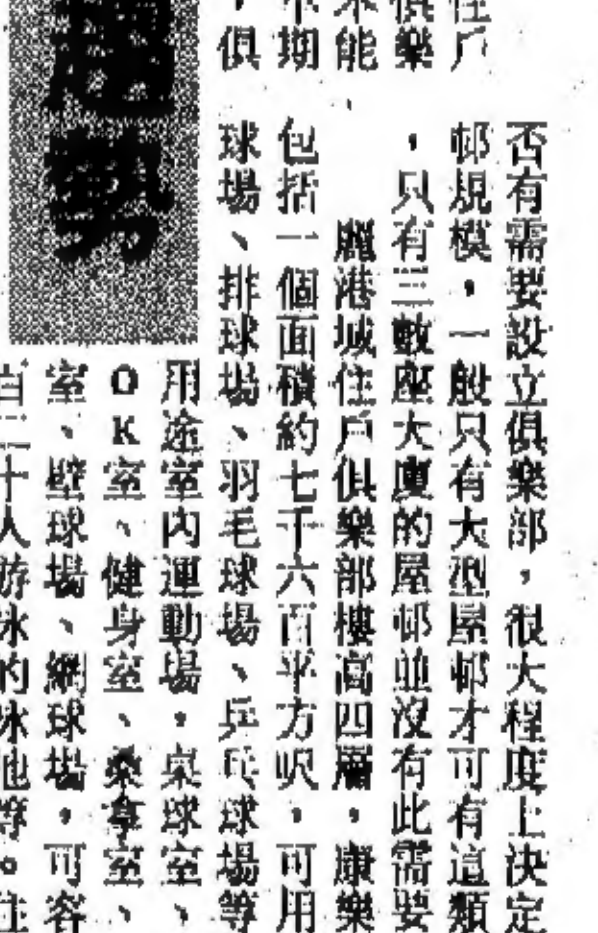 趨勢
住戶
俱樂
不能
不期
，俱
否有需要設立俱樂部，很大程度上決定
邨規模，一般只有大型屋邨才可有這類
，只有三數座大廈的屋邨並沒有此需要
麗港城住戶俱樂部樓高四層，康樂
包括一個面積約七千六百平方呎，可用
球場、排球場、羽毛球場、乒乓球場等
用途室內運動場，桌球室、
OK室、健身室、桑拿室、
室、壁球場、網球場，可容
百二十人游泳的泳池等。住